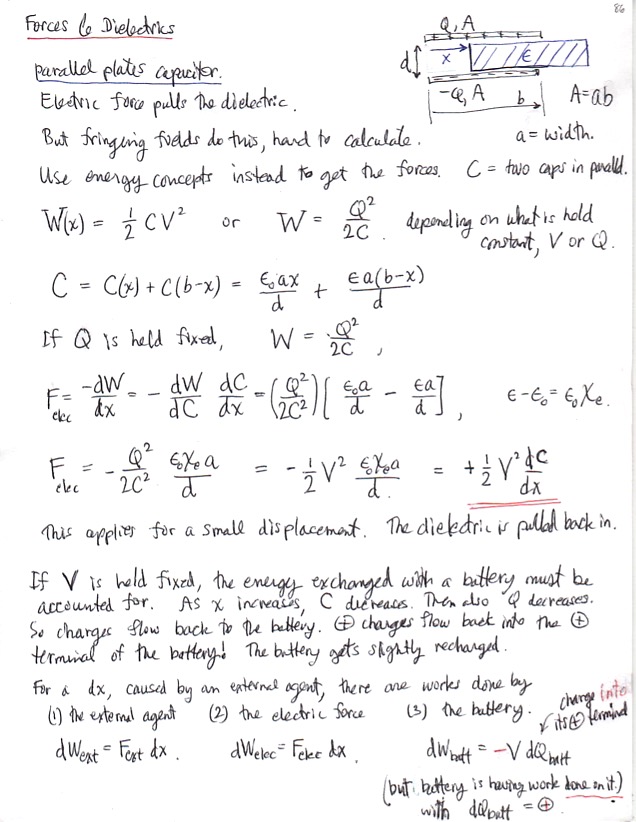 86
Forces & Dielectrics
Q, A
d
x
ε
-Q, A
b
A = ab
a = width.
parallel plates capacitor.
Electric force pulls the dielectric.
But fringing fields do this, hard to calculate.
Use energy concepts instead to get the forces. C = two caps in parallel.
W(x) = 1/2 CV² or W = Q²/2C. depending on what is held
constant, V or Q.
C = C(x) + C(b-x) = ε₀ax/d + εa(b-x)/d
If Q is held fixed, W = Q²/2C,
F_elec = -dW/dx = - dW/dC dC/dx = (Q²/2C²)[ε₀a/d - εa/d], ε-ε₀ = ε₀χₑ.
F_elec = - Q²/2C² ε₀χₑa/d = - 1/2 V² ε₀χₑa/d. = + 1/2 V² dC/dx
This applies for a small displacement. The dielectric is pulled back in.
If V is held fixed, the energy exchanged with a battery must be
accounted for. As x increases, C decreases. Then also Q decreases.
So charges flow back to the battery. ⊕ charges flow back into the ⊕
terminal of the battery! The battery gets slightly recharged.
For a dx, caused by an external agent, there are works done by
(1) the external agent (2) the electric force (3) the battery.
charge into
its ⊕ terminal
dW_ext = F_ext dx. dW_elec = F_elec dx. dW_batt = -V dQ_batt
(but battery is having work done on it.)
with dQ_batt = ⊕